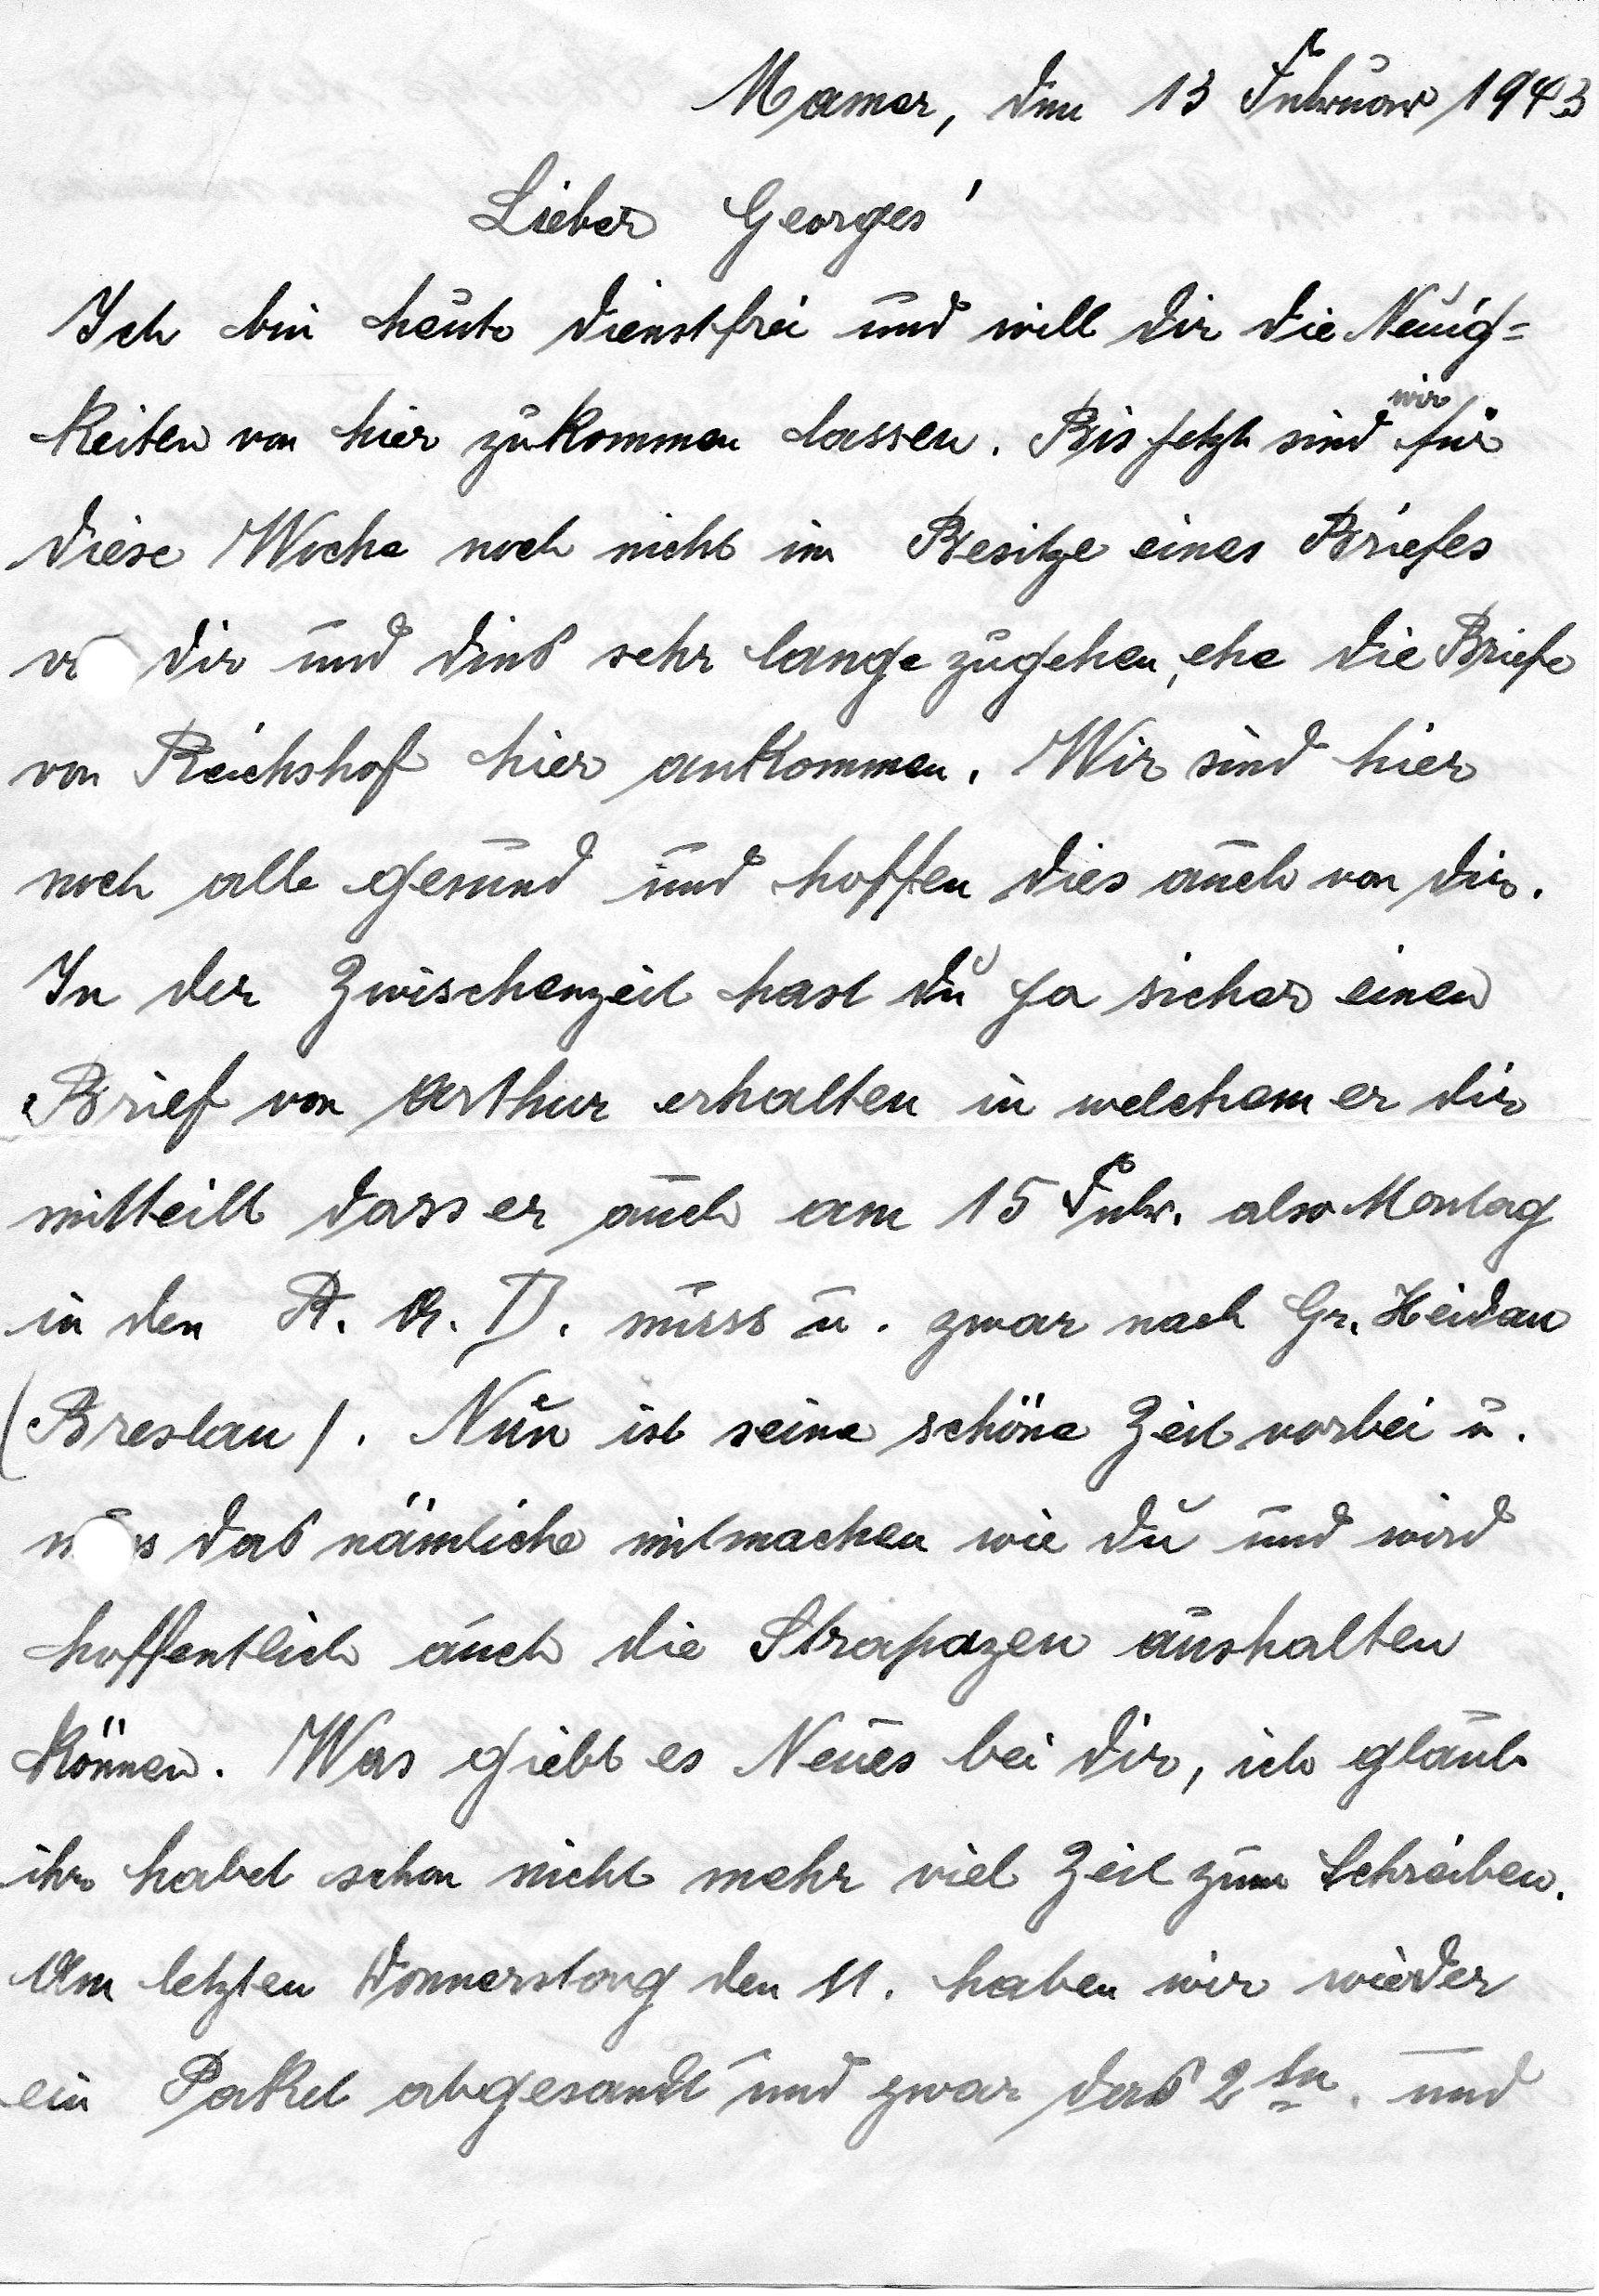 Mamer, den 13 Februar 1943
Lieber Georges'
Ich bin heute dienstfrei und will dir die Neuig=
keiten von hier zukommen lassen. Bis jetzt sind wir für
diese Woche noch nicht im Besitze eines Briefes
dir und sehr lange zugehen, ehe die Briefe
von Reichshof hier ankommen. Wir sind hier
noch alle gesund und hoffen dies auch von dir.
In der Zwischenzeit hast du ja sicher einen
Brief von Arthur erhalten in welchem er dir
mitteilt dass er auch am 15 Febr. also Montag
in den R. A. D. muss u. zwar nach Gr. Heidau
(Breslau). Nun ist seine schöne Zeit vorbei u.
das nämliche mitmachen wie du und wird
hoffentlich auch die Strapazen aushalten
können. Was giebt es Neues bei dir, ich glaub
ihr habet schon nicht mehr viel Zeit zum Schreiben.
Am letzten Donnerstag den 11. haben wir wieder
ein Paket abgesandt und zwar das 2te. und